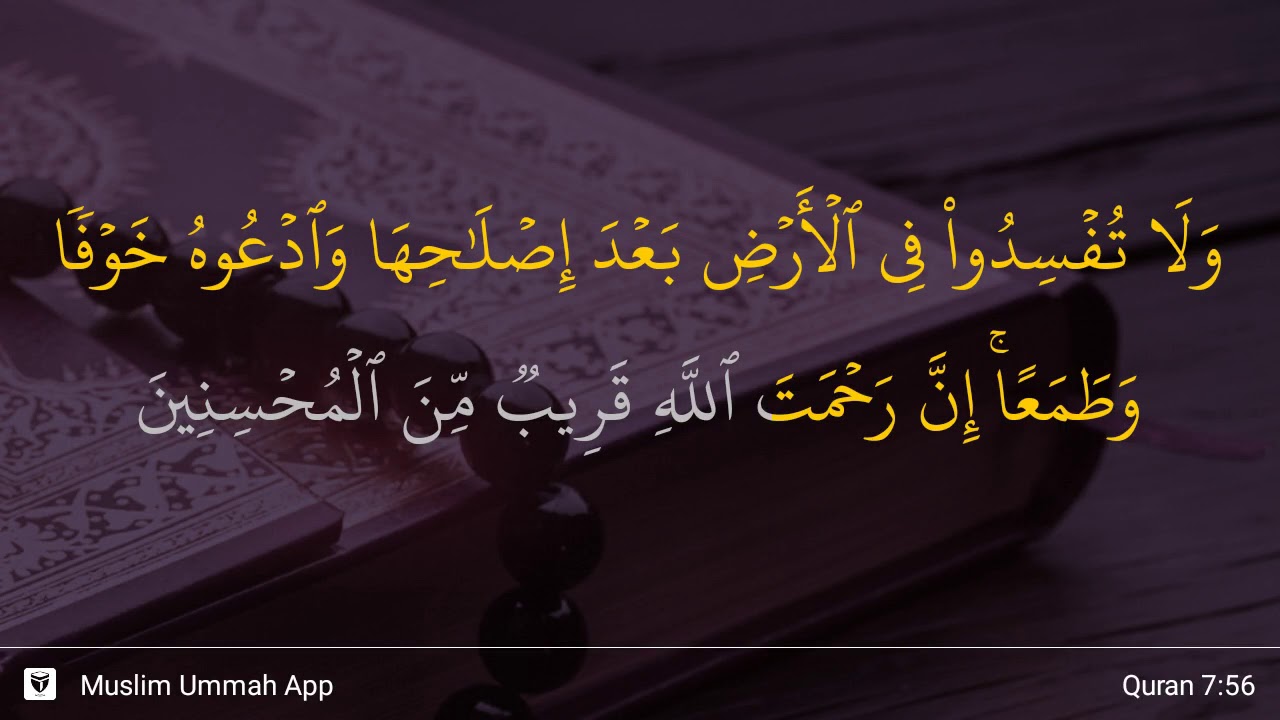 وَلَا تُفْسِدُوا۟ فِى ٱلْأَرْضِ بَعْدَ إِصْلَـٰحِهَا وَٱدْعُوهُ خَوْفًا
وَطَمَعًا ۚ إِنَّ رَحْمَتَ ٱللَّهِ قَرِيبٌ مِّنَ ٱلْمُحْسِنِينَ
Muslim Ummah App
Quran 7:56